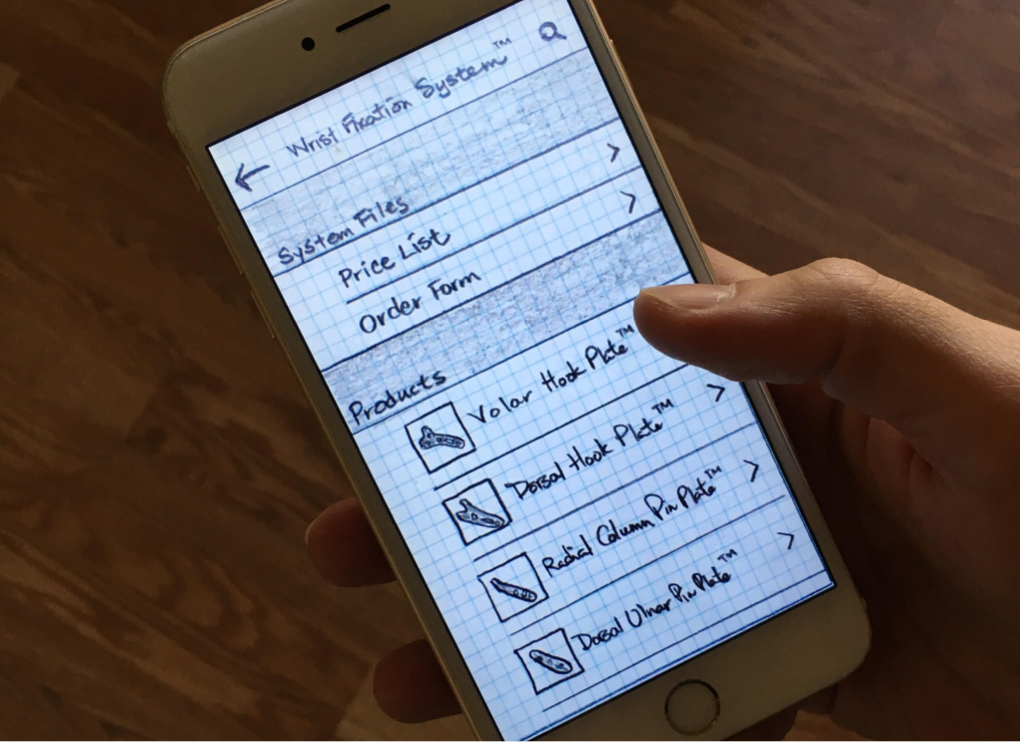 Wrist Fixation System™
System Files
Price List
Order Form
Products
Volar Hook Plate™
Dorsal Hook Plate™
Radial Column Pin Plate™
Dorsal Ulnar Pin Plate™